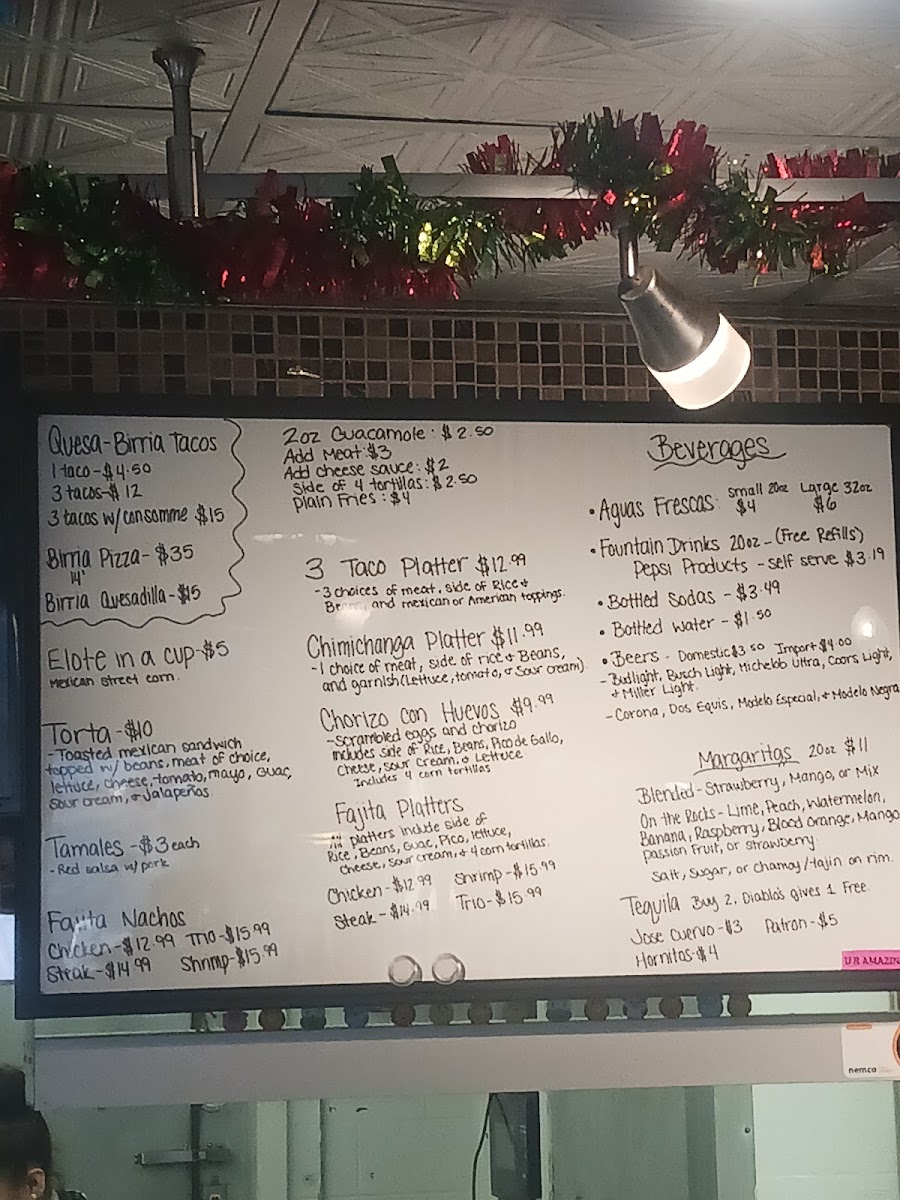 Quesa-Birria Tacos
1 taco-$4.50
3 tacos-$12
3 tacos w/consomme $15
Birria Pizza-$35
14"
Birria Quesadilla-$15
Elote in a cup-$5
Mexican street corn.
Torta-$10
-Toasted mexican sandwich
topped w/ beans, meat of choice,
lettuce, cheese, tomato, mayo, Guac,
Sour cream, & Jalapeñas.
Tamales-$3 each
-Red salsa w/ pork
Fajita Nachos
Chicken-$12.99 Trio-$15.99
Steak-$14.99 Shrimp-$15.99
2oz Guacamole: $2.50
Add Meat:$3
Add cheese sauce: $2
Side of 4 tortillas: $2.50
Plain Fries: $4
3 Taco Platter $12.99
-3 choices of meat, side of Rice &
Beans, and mexican or American toppings.
Chimichanga Platter $11.99
-1 choice of meat, side of rice & Beans,
and garnish (Lettuce, tomato, & Sour cream).
Chorizo con Huevos $9.99
-Scrambled eggs and chorizo
includes side of Rice, Beans, Pico de Gallo,
Cheese, Sour Cream, & Lettuce
Includes 4 corn tortillas
Fajita Platters
All platters include side of
Rice, Beans, Guac, Pico, lettuce,
Cheese, Sour cream, & 4 corn tortillas.
Chicken-$12.99 Shrimp-$15.99
Steak-$14.99 Trio-$15.99
Beverages
•Aguas Frescas: Small 20oz $4 Large 32oz $6
•Fountain Drinks 20oz-(Free Refills)
Pepsi Products - self serve $3.19
•Bottled Sodas - $3.49
•Bottled Water - $1.50
•Beers - Domestic $3.50 Import $4.00
-Budlight, Busch Light, Michelob Ultra, Coors Light,
& Miller Light.
-Corona, Dos Equis, Modelo Especial, & Modelo Negra
Margaritas 20oz $11
Blended-Strawberry, Mango, or Mix
On the Rocks-Lime, Peach, Watermelon,
Banana, Raspberry, Blood Orange, Mango
Passion Fruit, or strawberry.
Salt, Sugar, or Chamoy/tajin on rim.
Tequila Buy 2, Diablo's gives 1 Free.
Jose Cuervo-$3 Patron-$5
Hornitos-$4
U R AMAZIN
nemco